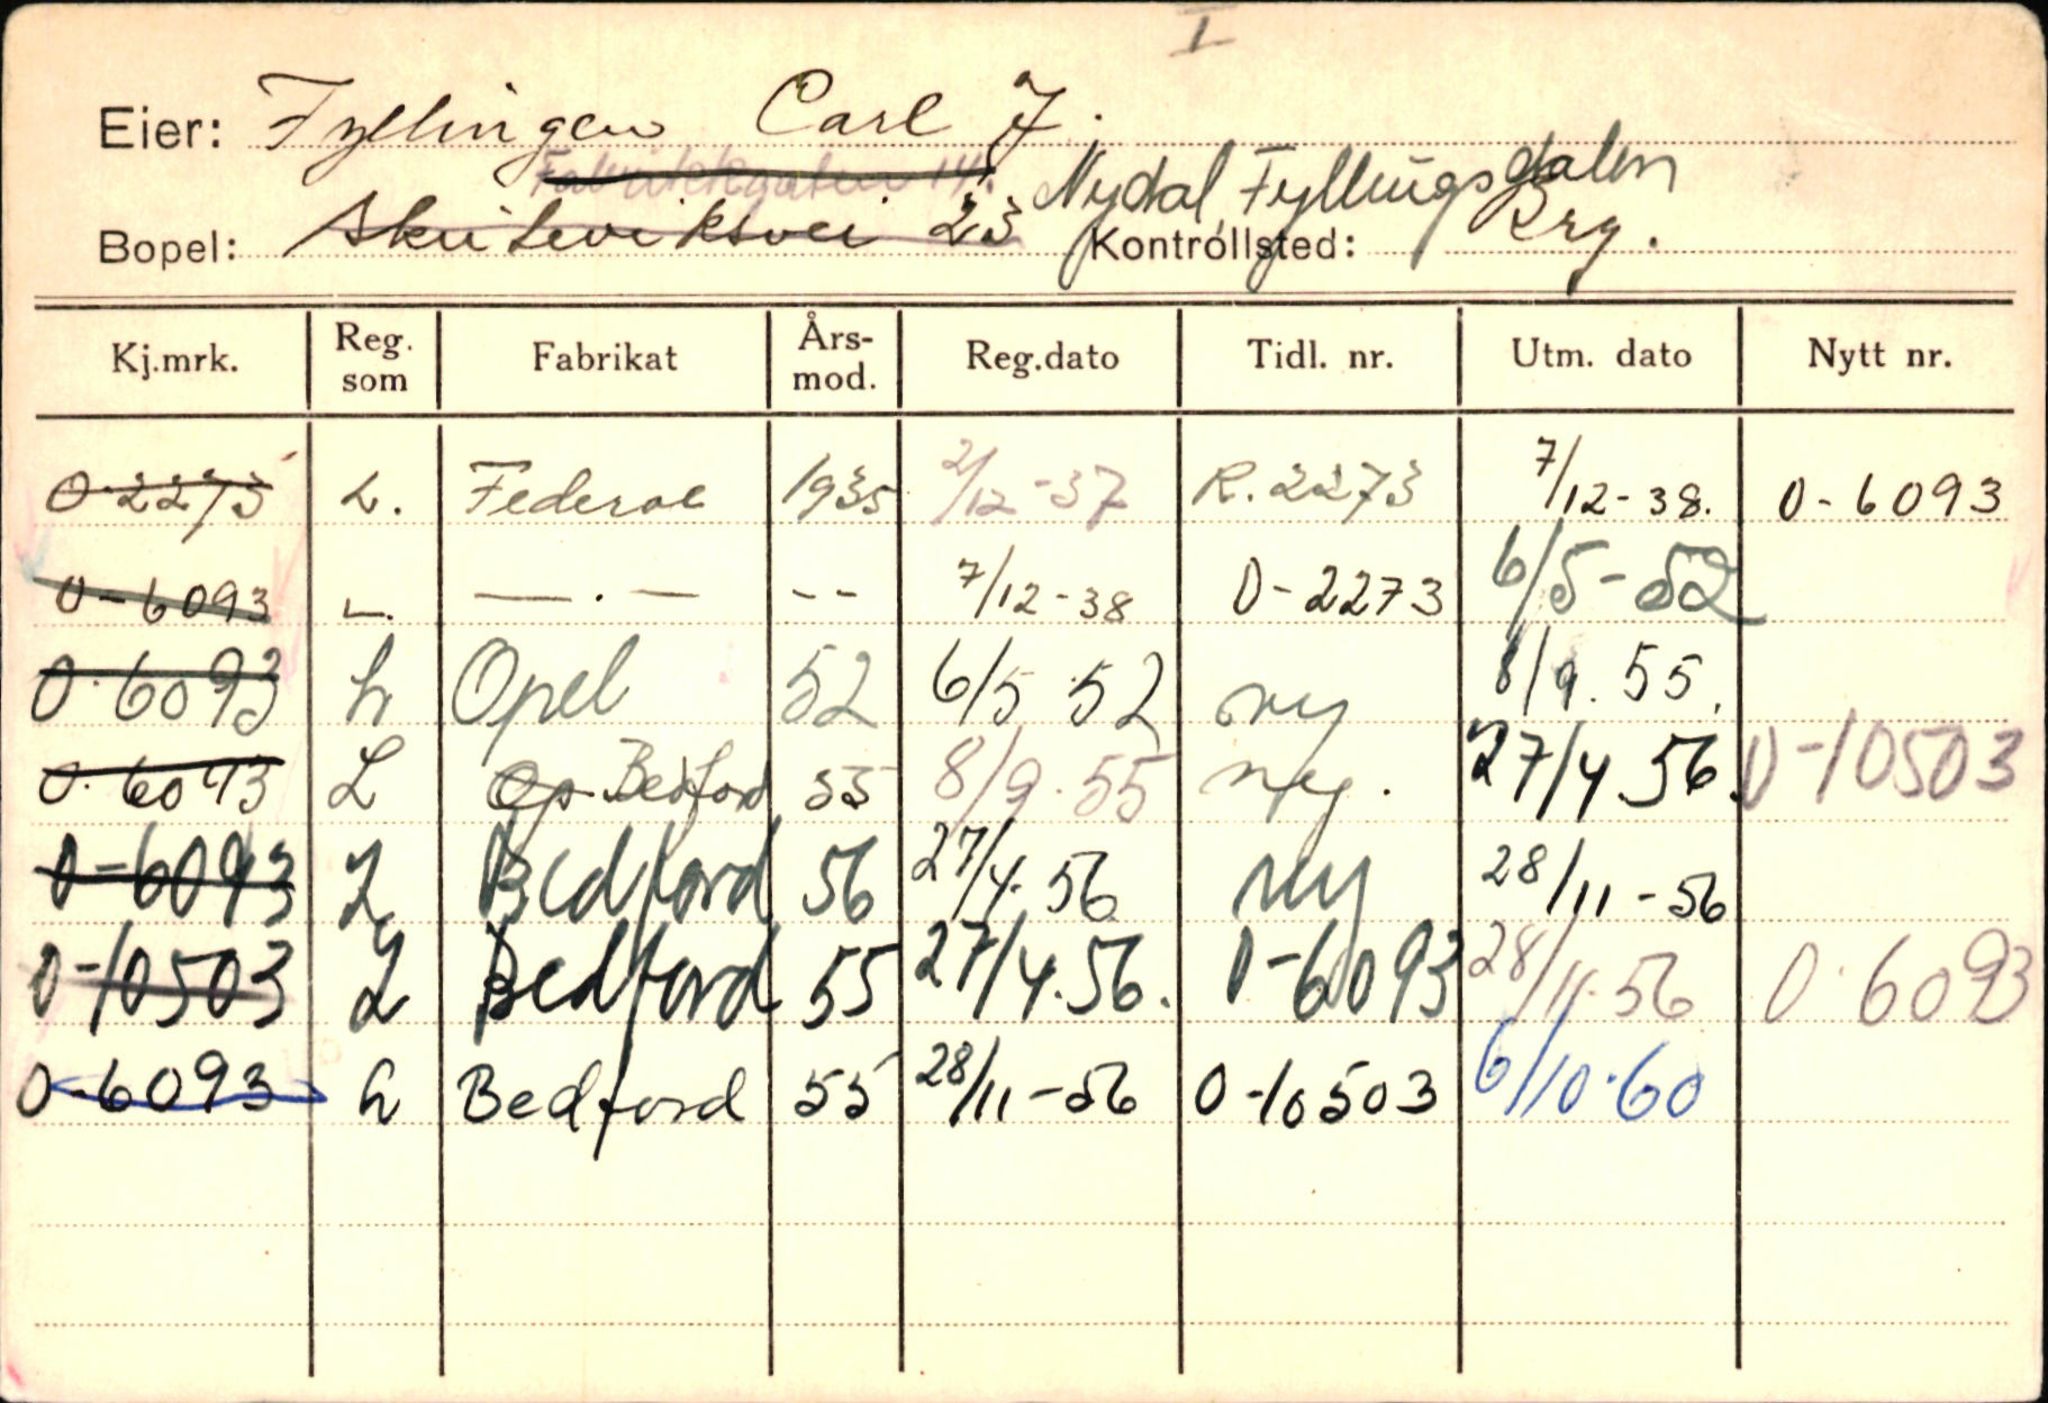 I
Eier: Fyllingen Carl J.
Fabrikkgaten 14. Nydal, Fyllingsdalen
Bopel: Skuteviksvei 23 Kontrollsted: Brg.
Kj.mrk. Reg. som Fabrikat Års-mod. Reg.dato Tidl. nr. Utm. dato Nytt nr.
O-2273 L. Federal 1935 2/12-37 R. 2273 7/12-38. O-6093
O-6093 L. —.— -- 7/12-38 O-2273 6/5-52
O-6093 L Opel 52 6/5 52 ny 8/9. 55.
O-6093 L Op. Bedford 55 8/9.55 ny. 27/4 56. O-10503
O-6093 L Bedford 56 27/4. 56 ny 28/11-56
O-10503 L Bedford 55 27/4.56. O-6093 28/11.56 O.6093
O-6093 L Bedford 55 28/11-56 O-10503 6/10.60